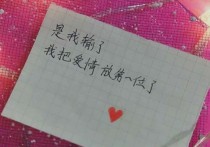 是我输了
我把爱情放第一位了